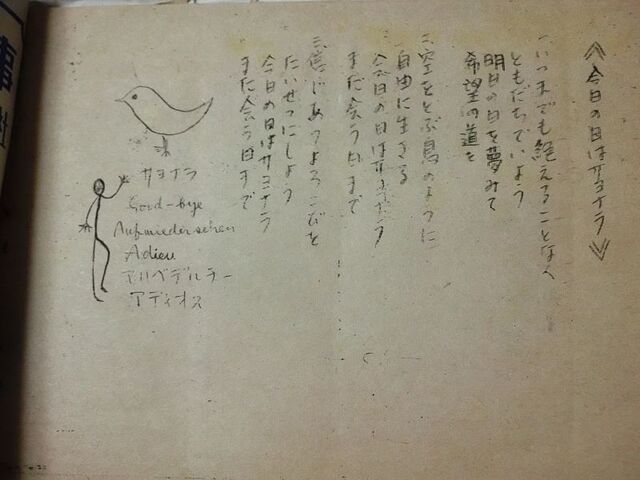 《今日の日はサヨナラ》
一、いつまでも絶えることなく
ともだちでいよう
明日の日を夢みて
希望の道を
二、空をとぶ鳥のように
自由に生きる
今日の日はサヨナラ
また会う日まで
三、信じあうよろこびを
たいせつにしよう
今日の日はサヨナラ
また会う日まで
サヨナラ
Good-bye
Aufwiedersehen
Adieu
アリベデルラー
アディオス